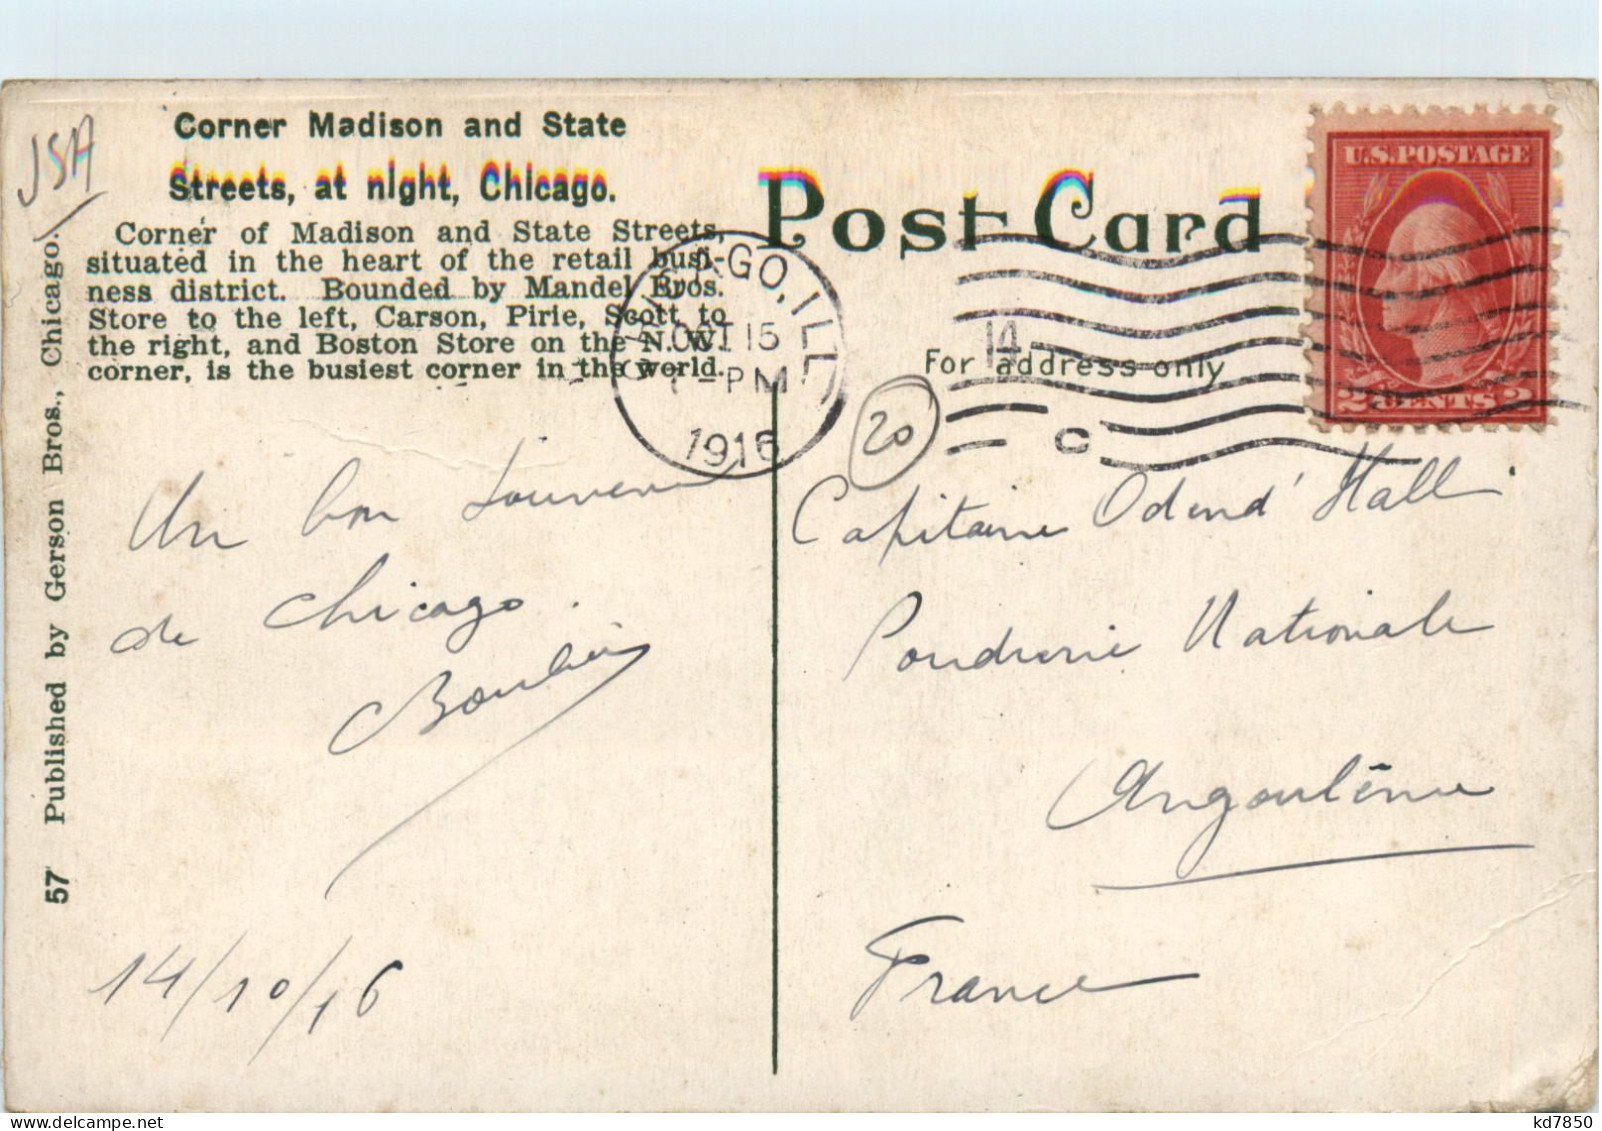 JSA
Corner Madison and State
Streets, at night, Chicago.
Corner of Madison and State Streets,
situated in the heart of the retail busi-
ness district. Bounded by Mandel Bros.
Store to the left, Carson, Pirie, Scott to
the right, and Boston Store on the N. W.
corner, is the busiest corner in the world.
57 Published by Gerson Bros., Chicago.
Un bon souvenir
de Chicago.
14/10/16
Post Card
For address only
CHICAGO, ILL.
OCT 15
PM
1916
14
C
U.S. POSTAGE
2 CENTS 2
20
Capitaine Odend'Hall
Poudrerie Nationale
Angoulême
France
delcampe.net
kd7850